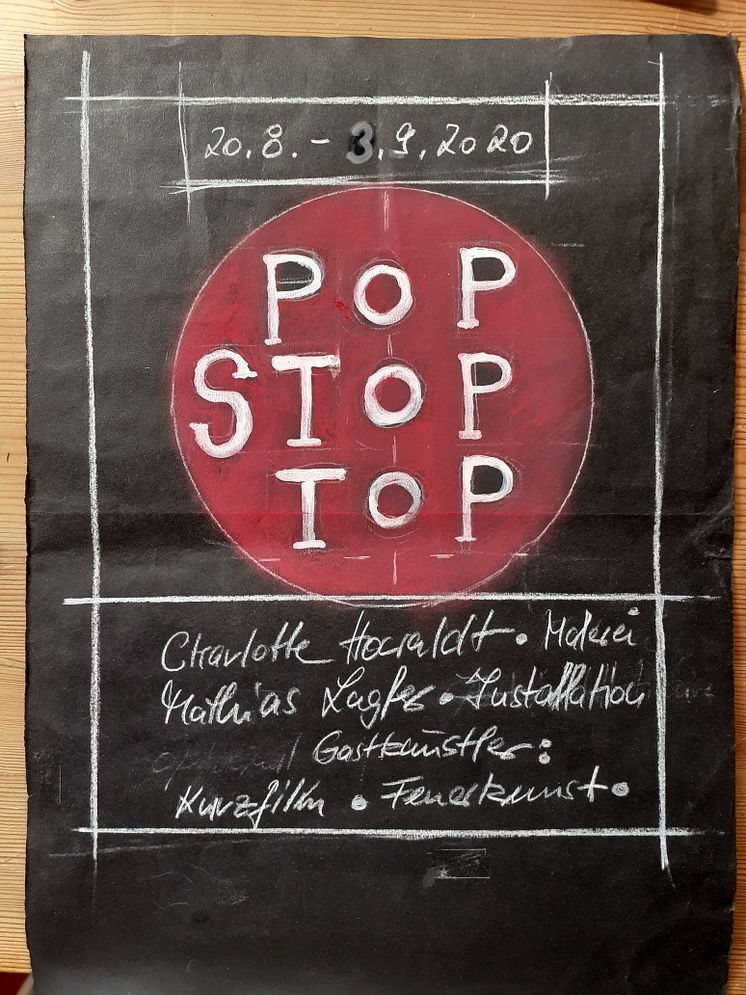 20.8. - 3.9.2020
POP
STOP
TOP
Charlotte • Malerei
Mathias • Installation
Gastkünstler:
Kurzfilm • Feuerkunst •